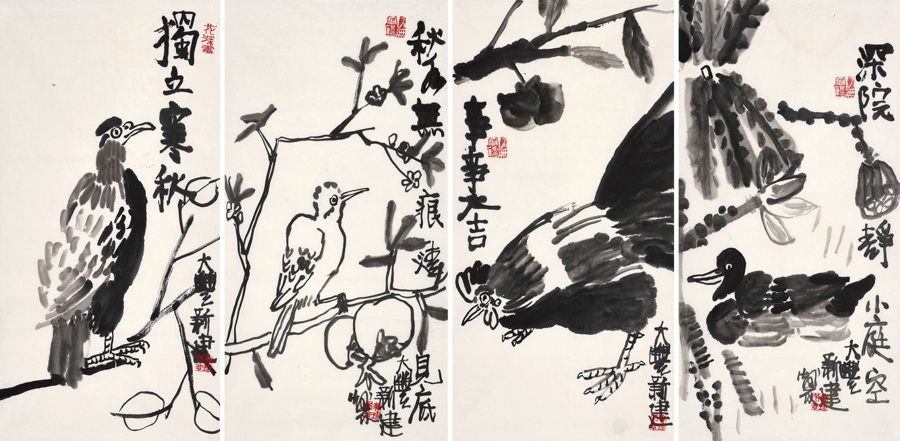 獨立寒秋
大豐新建
秋水無痕清見底
大豐新建製
事事大吉
大豐新建
深院靜小庭空
大豐新建製